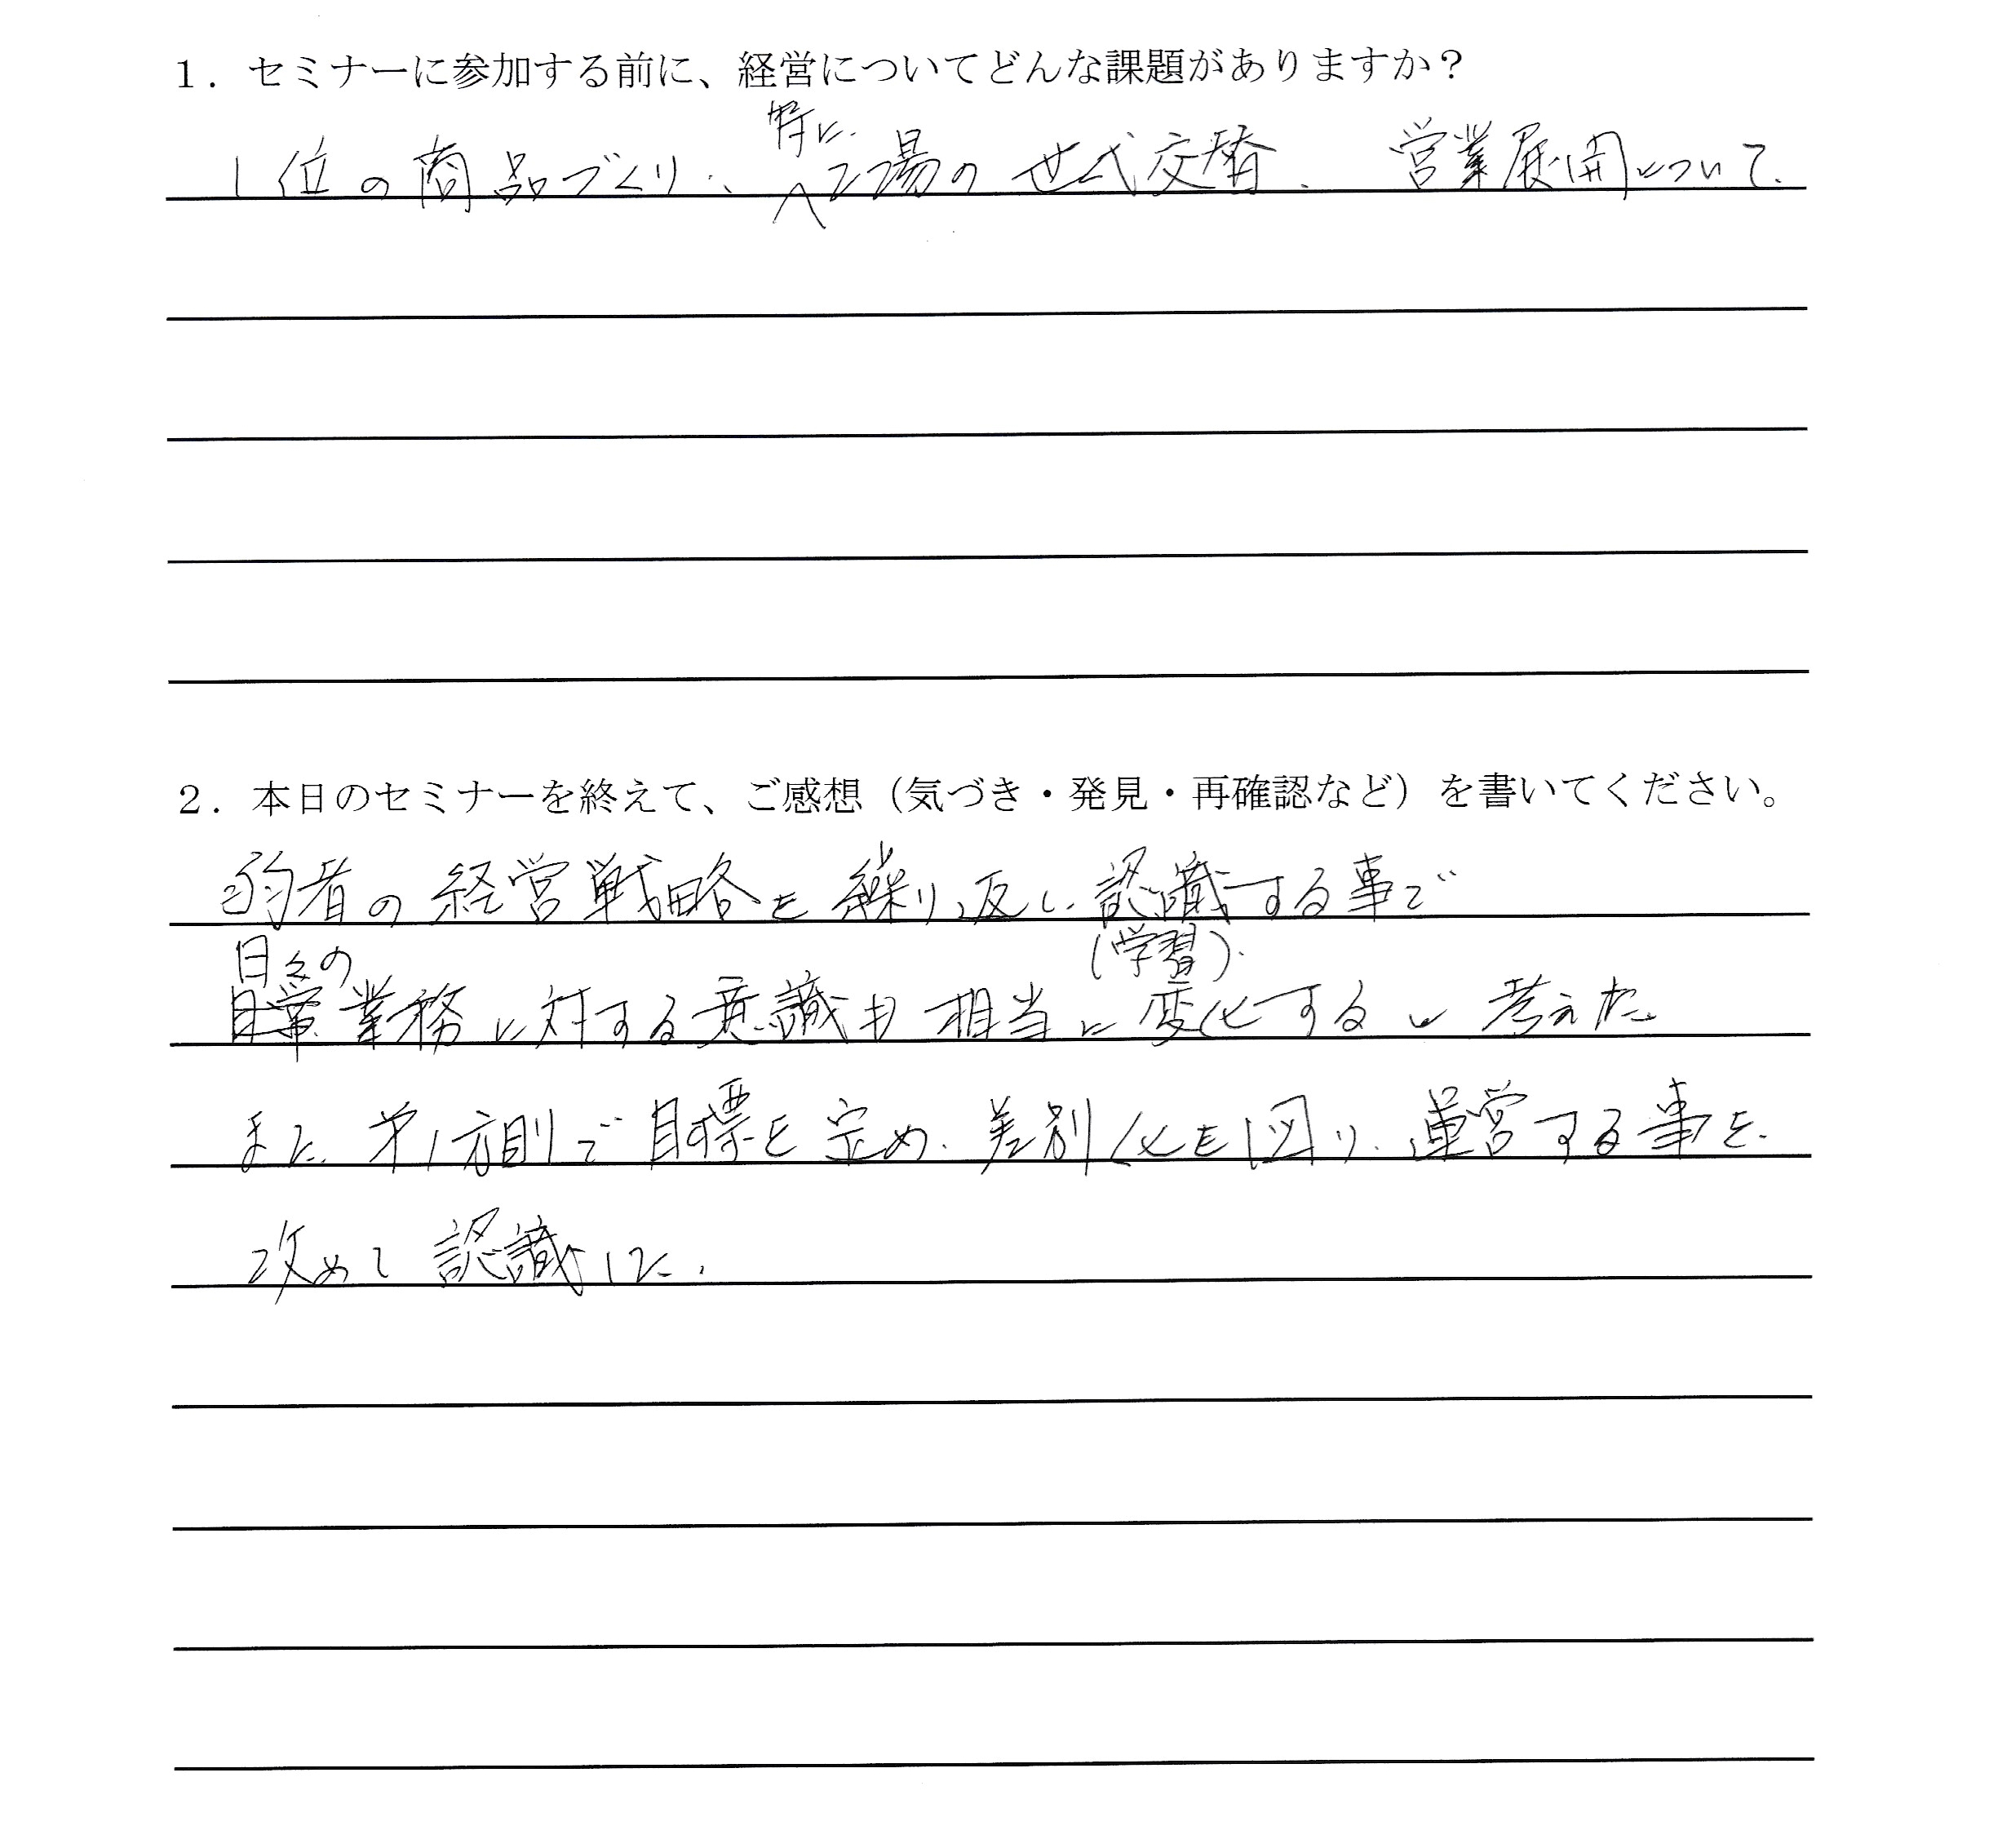 1．セミナーに参加する前に、経営についてどんな課題がありますか？
特に
1位の商品づくり、工場の世代交替、営業展開について、
2．本日のセミナーを終えて、ご感想（気づき・発見・再確認など）を書いてください。
弱者の経営戦略を繰り返し認識する事で
(学習)
日々の
日常業務に対する意識も相当に変化すると考えた。
また、第1方則で目標を定め、差別化を図り、運営する事を、
改めて認識した。